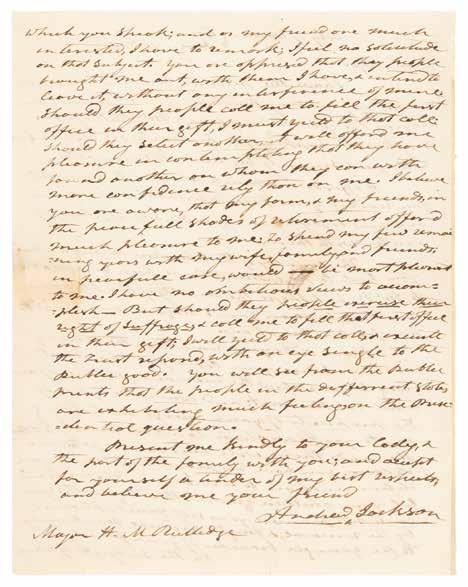 which you speak; and as my friend one much
interested, I have to remark, I feel no solicitude
on that subject. You are apprised that they people
brought me out, with them I have, & intend to
leave it, without any interference of mine
should they people call me to fill the first
office in their gift, I must yield to that call;
should they select another, it will afford me
pleasure in contemplating that they have
found another on whom they can with
more confidence rely than on me. I believe
you are aware, that my farm, & my friends, in
the peacefull shades of retirement afford
much pleasure to me. To spend my few remai
ning years with my wife, family, and friends
in peacefull ease, would — be most pleasant
to me. I have no ambitious views to accom-
plish — But should they people exercise their
right of suffrage, & call me to fill that first office
in their gift, I will yield to that call, & execute
the trust reposed, with an eye single to the
Publick good. You will see from the Publick
prints that the people in the different states
are exhibiting much feeling on the Presi-
dential question.
Present me kindly to your Lady, &
the part of the family with you; and accept
for yourself a tender of my best respects,
and believe me your friend
Andrew Jackson
Major H. M. Rutledge